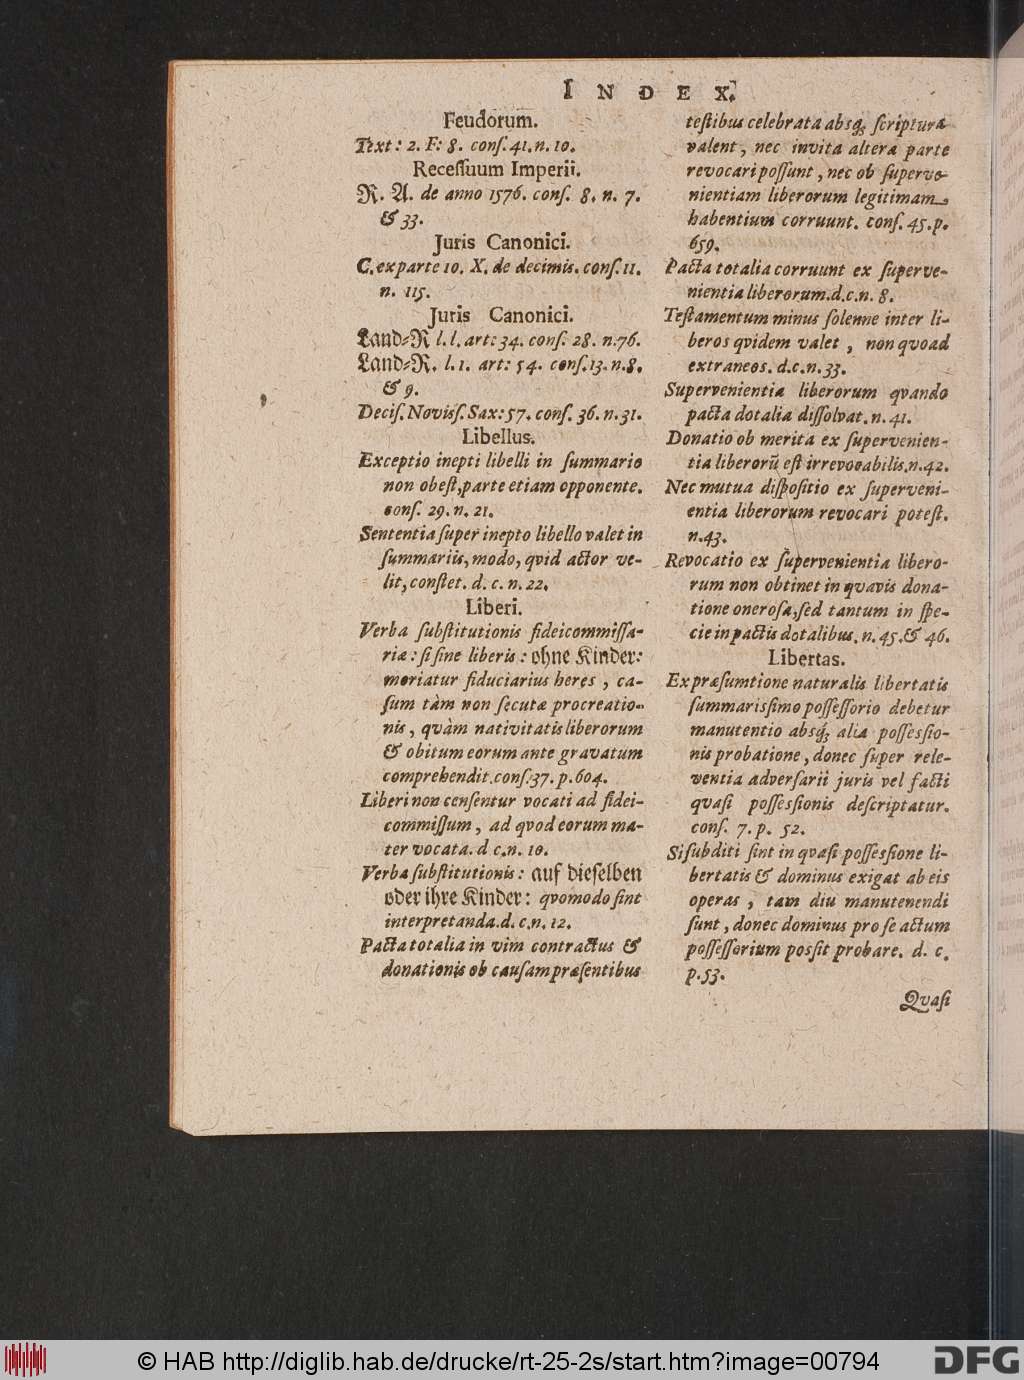 INDEX.
Feudorum.
Text: 2. F: 8. conſ. 41. n. 10.
Receſſuum Imperii.
R. A. de anno 1576. conſ. 8. n. 7.
& 33.
Juris Canonici.
C. ex parte 10. X. de decimis. conſ. 11.
n. 115.
Juris Canonici.
Land=R l. l. art: 34. conſ. 28. n. 76.
Land=R. l. 1. art: 54. conſ. 13. n. 8.
& 9.
Deciſ. Noviſſ. Sax: 57. conſ. 36. n. 31.
Libellus.
Exceptio inepti libelli in ſummario
non obeſt, parte etiam opponente.
conſ. 29. n. 21.
Sententia ſuper inepto libello valet in
ſummariis, modo, qvid actor ve-
lit, conſtet. d. c. n. 22.
Liberi.
Verba ſubſtitutionis fideicommiſſa-
riæ: ſi ſine liberis: ohne Kinder:
moriatur fiduciarius heres, ca-
ſum tàm non ſecutæ procreatio-
nis, qvàm nativitatis liberorum
& obitum eorum ante gravatum
comprehendit. conſ. 37. p. 604.
Liberi non cenſentur vocati ad fidei-
commiſſum, ad qvod eorum ma-
ter vocata. d c. n. 10.
Verba ſubſtitutionis: auf dieſelben
oder ihre Kinder: qvomodo ſint
interpretanda. d. c. n. 12.
Pacta totalia in vim contractus &
donationis ob cauſam præſentibus
teſtibus celebrata absq; ſcriptura
valent, nec invita altera parte
revocari poſſunt, nec ob ſuperve-
nientiam liberorum legitimam
habentium corruunt. conſ. 45. p.
659.
Pacta totalia corruunt ex ſuperve-
nientia liberorum. d. c. n. 8.
Teſtamentum minus ſolenne inter li-
beros qvidem valet, non qvoad
extraneos. d. c. n. 33.
Supervenientia liberorum qvando
pacta dotalia diſſolvat. n. 41.
Donatio ob merita ex ſupervenien-
tia liberorū eſt irrevocabilis. n. 42.
Nec mutua diſpoſitio ex ſuperveni-
entia liberorum revocari poteſt.
n. 43.
Revocatio ex ſupervenientia libero-
rum non obtinet in qvavis dona-
tione oneroſa, ſed tantum in ſpe-
cie in pactis dotalibus. n. 45. & 46.
Libertas.
Ex præſumtione naturalis libertatis
ſummariſſimo poſſeſſorio debetur
manutentio absq; alia poſſeſſio-
nis probatione, donec ſuper rele-
ventia adverſarii juris vel facti
qvaſi poſſeſſionis deſcriptatur.
conſ. 7. p. 52.
Si ſubditi ſint in qvaſi poſſeſſione li-
bertatis & dominus exigat ab eis
operas, tam diu manutenendi
ſunt, donec dominus pro ſe actum
poſſeſſorium poſſit probare. d. c.
p. 53.
Qvaſi
© HAB http://diglib.hab.de/drucke/rt-25-2s/start.htm?image=00794
DFG